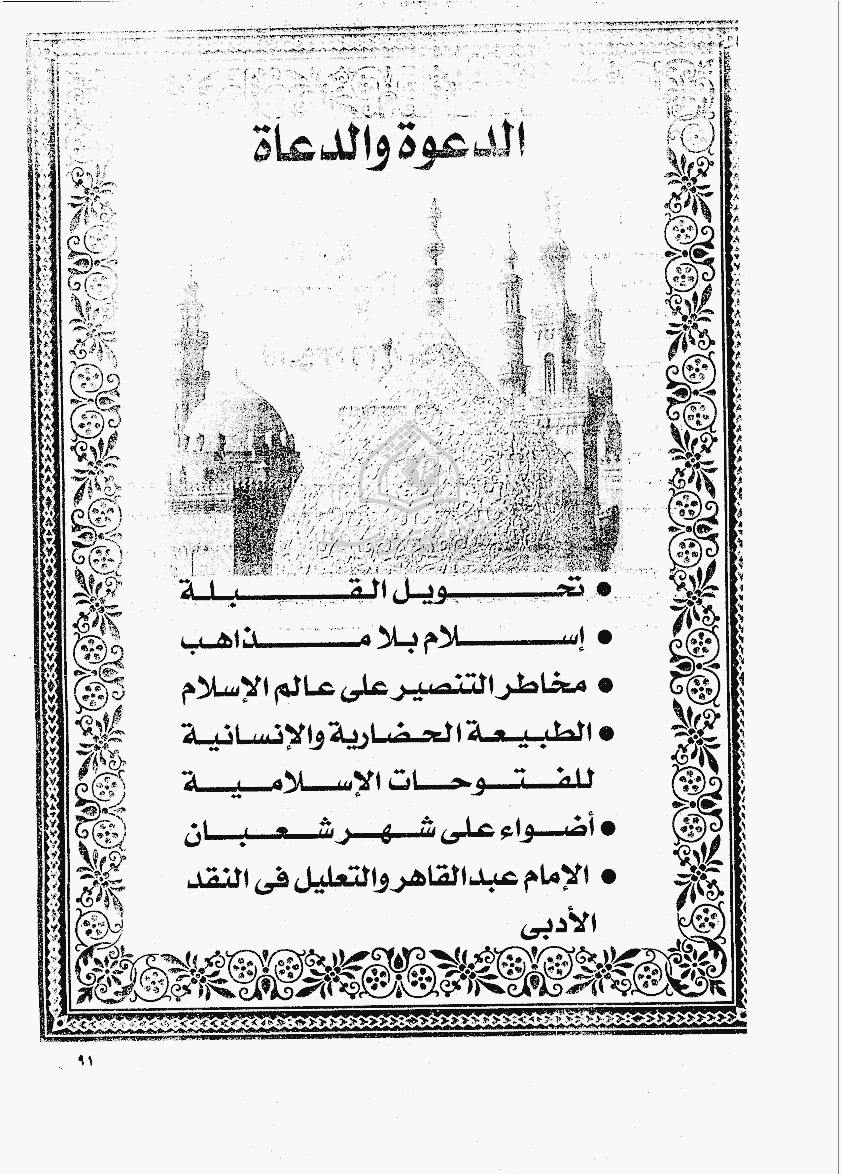 الدعوة والدعاة
• تحويل القبلة
• إسلام بلا مذاهب
• مخاطر التنصير على عالم الإسلام
• الطبيعة الحضارية والإنسانية
للفتوحات الإسلامية
• أضواء على شهر شعبان
• الإمام عبدالقاهر والتعليل فى النقد
الأدبى
٩١